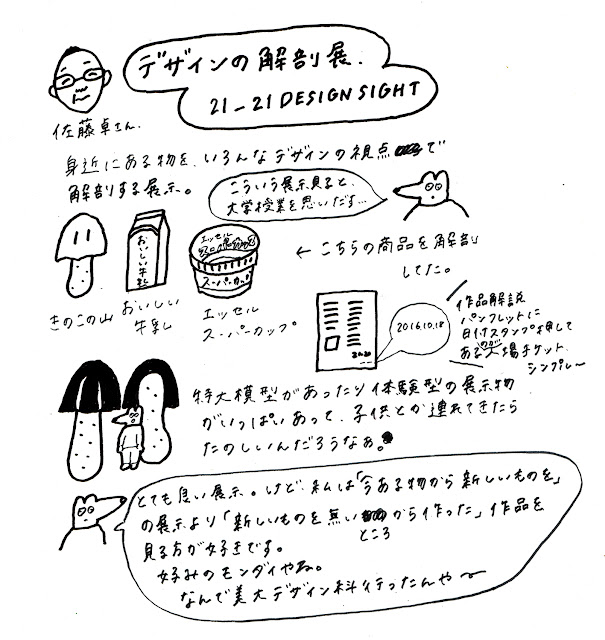 デザインの解剖展.
21_21 DESIGN SIGHT
佐藤卓さん.
身近にある物を、いろんなデザインの視点で
解剖する展示。
こういう展示見ると、
大学授業を思いだす…
おいしい牛乳
エッセル
スーパーカップ
← こちらの商品を解剖
してた。
きのこの山
おいしい
牛乳
エッセル
スーパーカップ
2016.10.18
作品解説
パンフレットに
日付スタンプ押して
あるのが入場チケット.
シンプル〜
特大模型があったり体験型の展示物
がいっぱいあって、子供とか連れてきたら
たのしいんだろうなぁ。
とても良い展示。けど、私は「今ある物から新しいものを」
の展示より「新しいものを無いところから作った」作品を
見る方が好きです。
好みのモンダイやね。
なんで美大デザイン科行ったんや〜